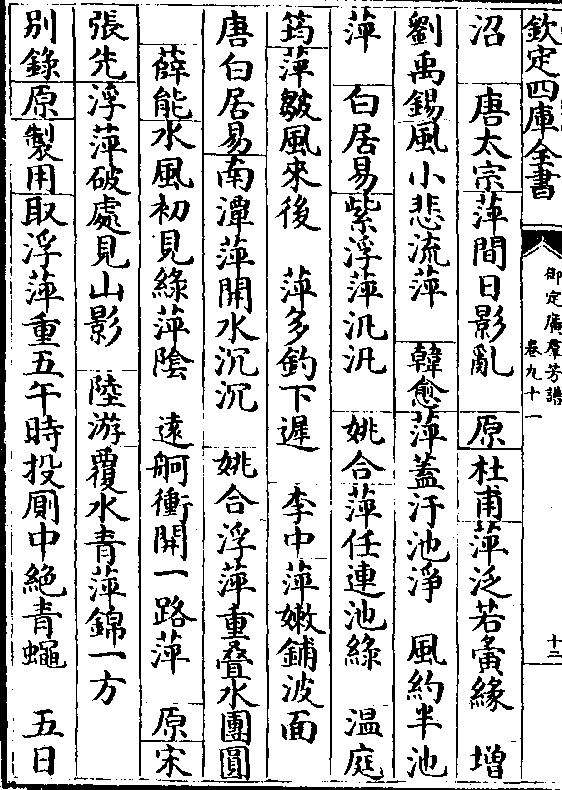 欽定四庫全書
御定廣群芳譜
卷九十一
十二
沼　唐太宗萍間日影亂　原杜甫萍泛若夤緣　增
劉禹錫風小悲流萍　韓愈萍蓋汙池淨　風約半池
萍　白居易紫浮萍汎汎　姚合萍任連池綠　温庭
筠萍皺風來後　萍多釣下遲　李中萍嫩鋪波面
唐白居易南潭萍開水沉沉　姚合浮萍重叠水團圓
薛能水風初見綠萍陰　遠舸衝開一路萍　原宋
張先浮萍破處見山影　陸游覆水青萍錦一方
別錄原製用取浮萍重五午時投厠中絶青蠅　五日